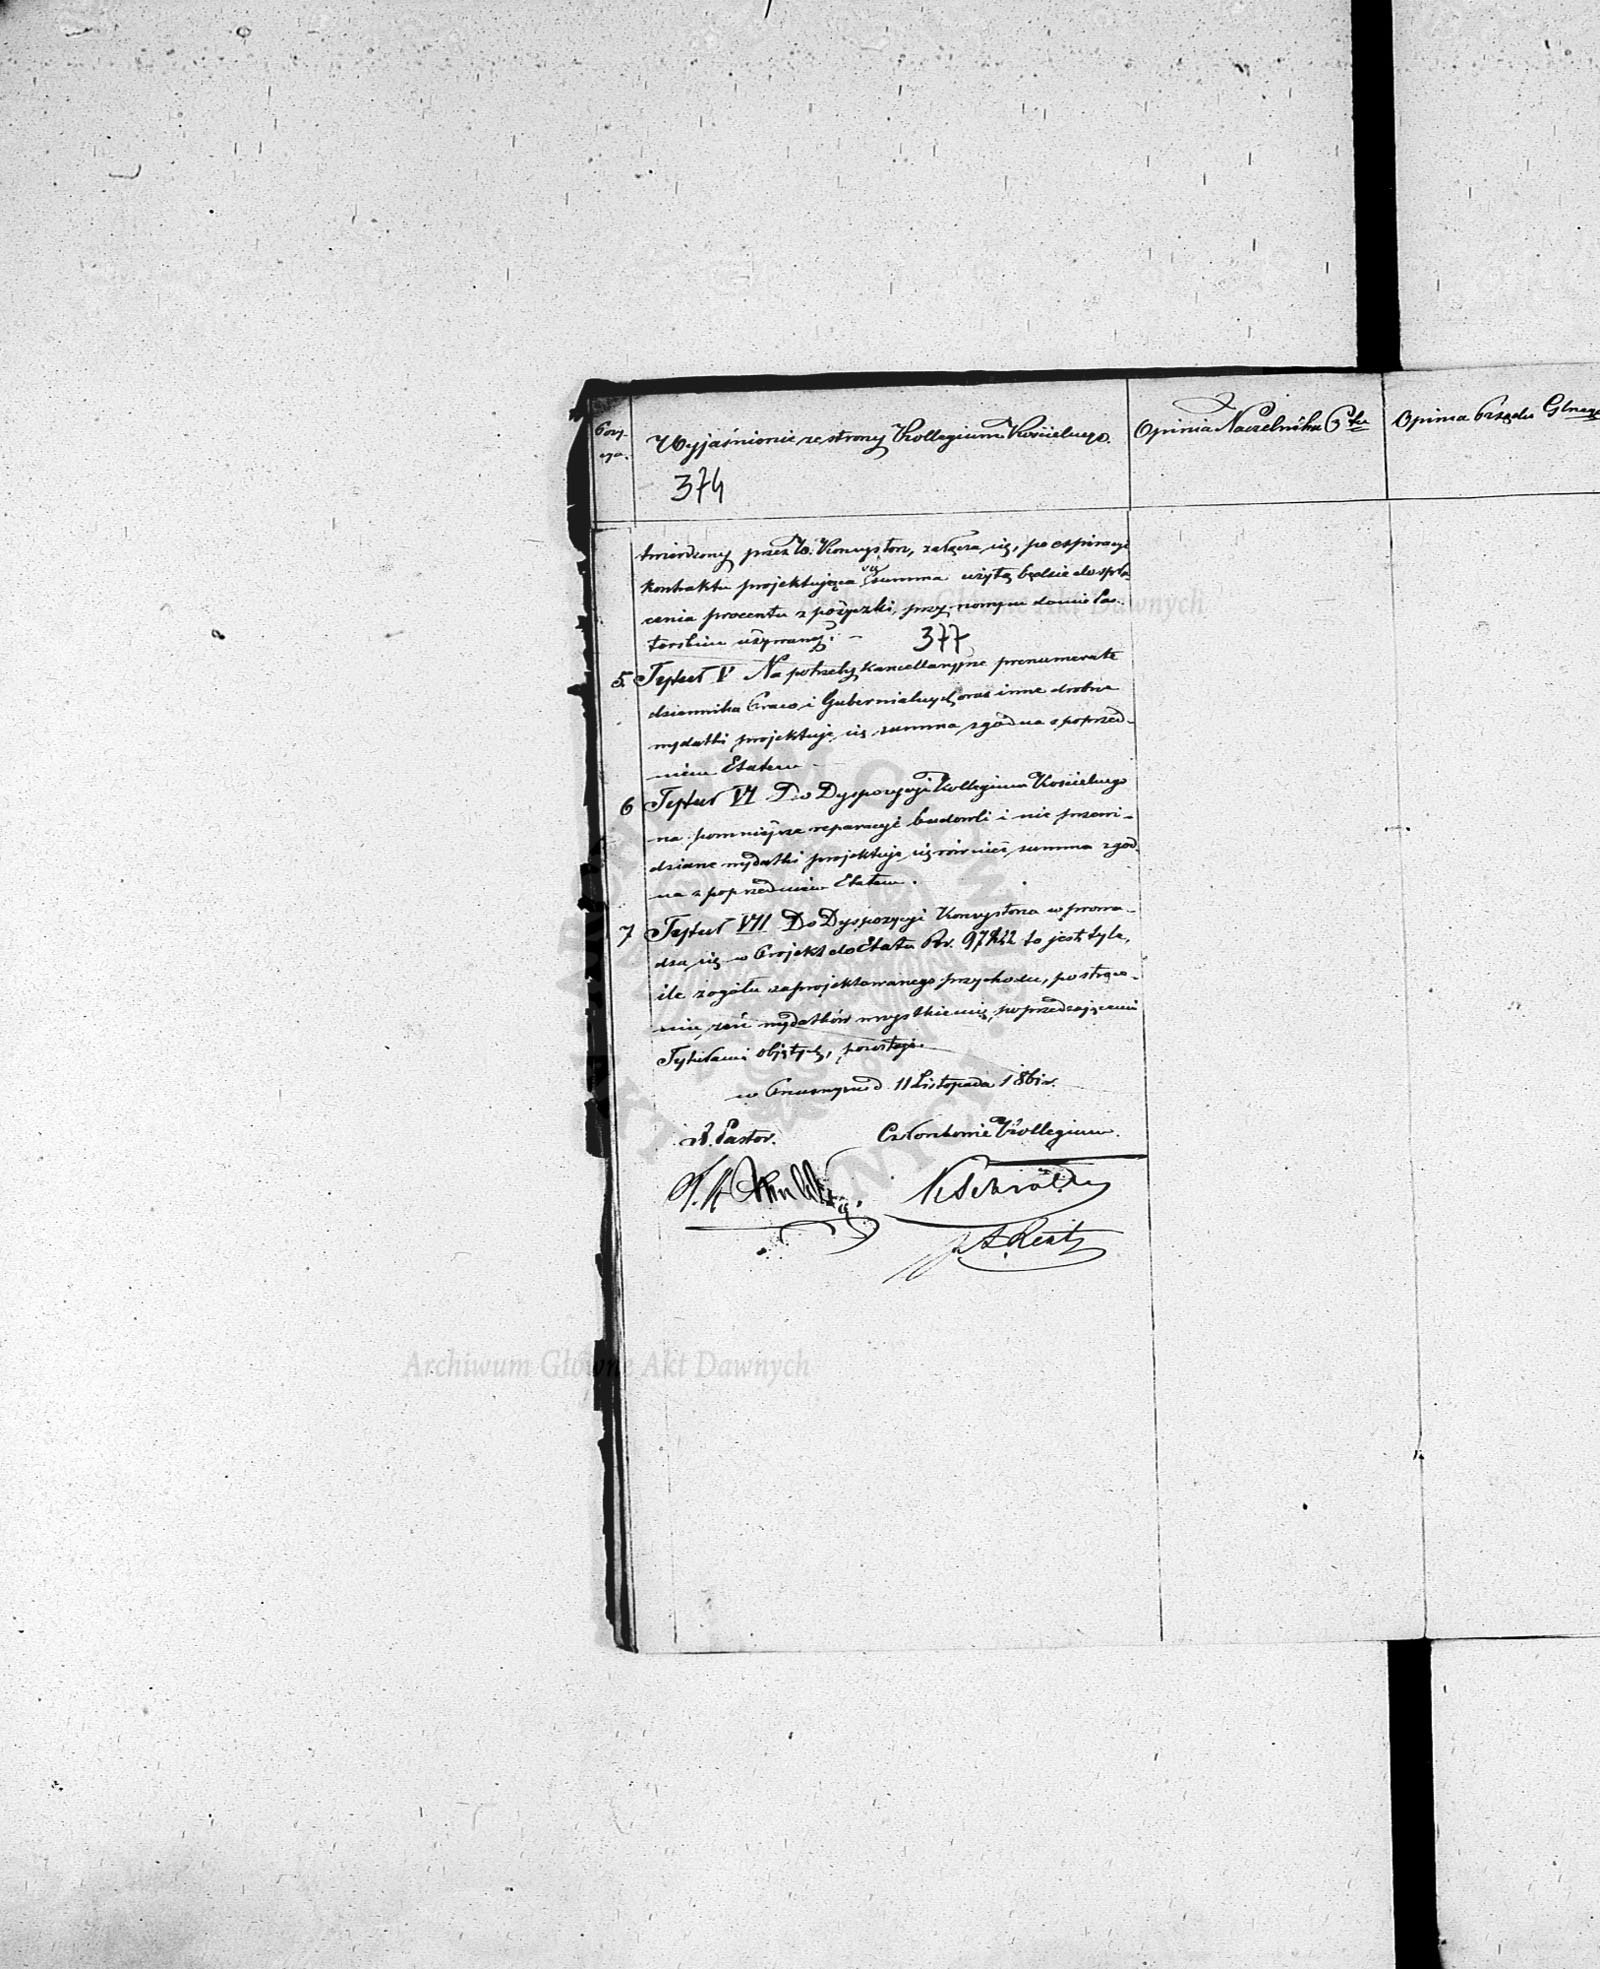 Pozy-
cya.
Wyjaśnienie ze strony Kollegium Kościelnego.
Opinia Naczelnika Ptu
Opinia Rządu Glnego
374
twierdzony przez W. Konsystorz, załącza się, po expiracyi
kontraktu projektująca się summa użytą będzie do spła-
cenia procentu z pożyczki, przy nowym domie Pas-
torskim użytwanej. –
377
5. Tytuł V Na potrzeby kancellaryjne prenumeratę
dziennika Praw i Gubernialnych oraz inne drobne
wydatki projektuje się summa zgodna z poprzed-
niem Etatem –
6 Tytuł VI Do Dyspozycyi Kollegium Kościelnego
na pomniejsze reparacyje budowli i nie przewi-
dziane wydatki projektuje się również summa zgod-
na z poprzedniem Etatem.
7 Tytuł VII Do Dyspozycyi Konsystorza wprowa-
dza się w Projekt do Etatu Rr. to jest tyle,
ile z ogółu zaprojektowanego przychodu, po strące-
niu zeń wydatków wszystkiemi poprzedzającemi
Tytułami objętych, pozostaje.
w d. 11 Listopada 186 r.
X. Pastor.
Członkowie Kollegium.
A. Rentz
Archiwum Główne Akt Dawnych
Archiwum Główne Akt Dawnych